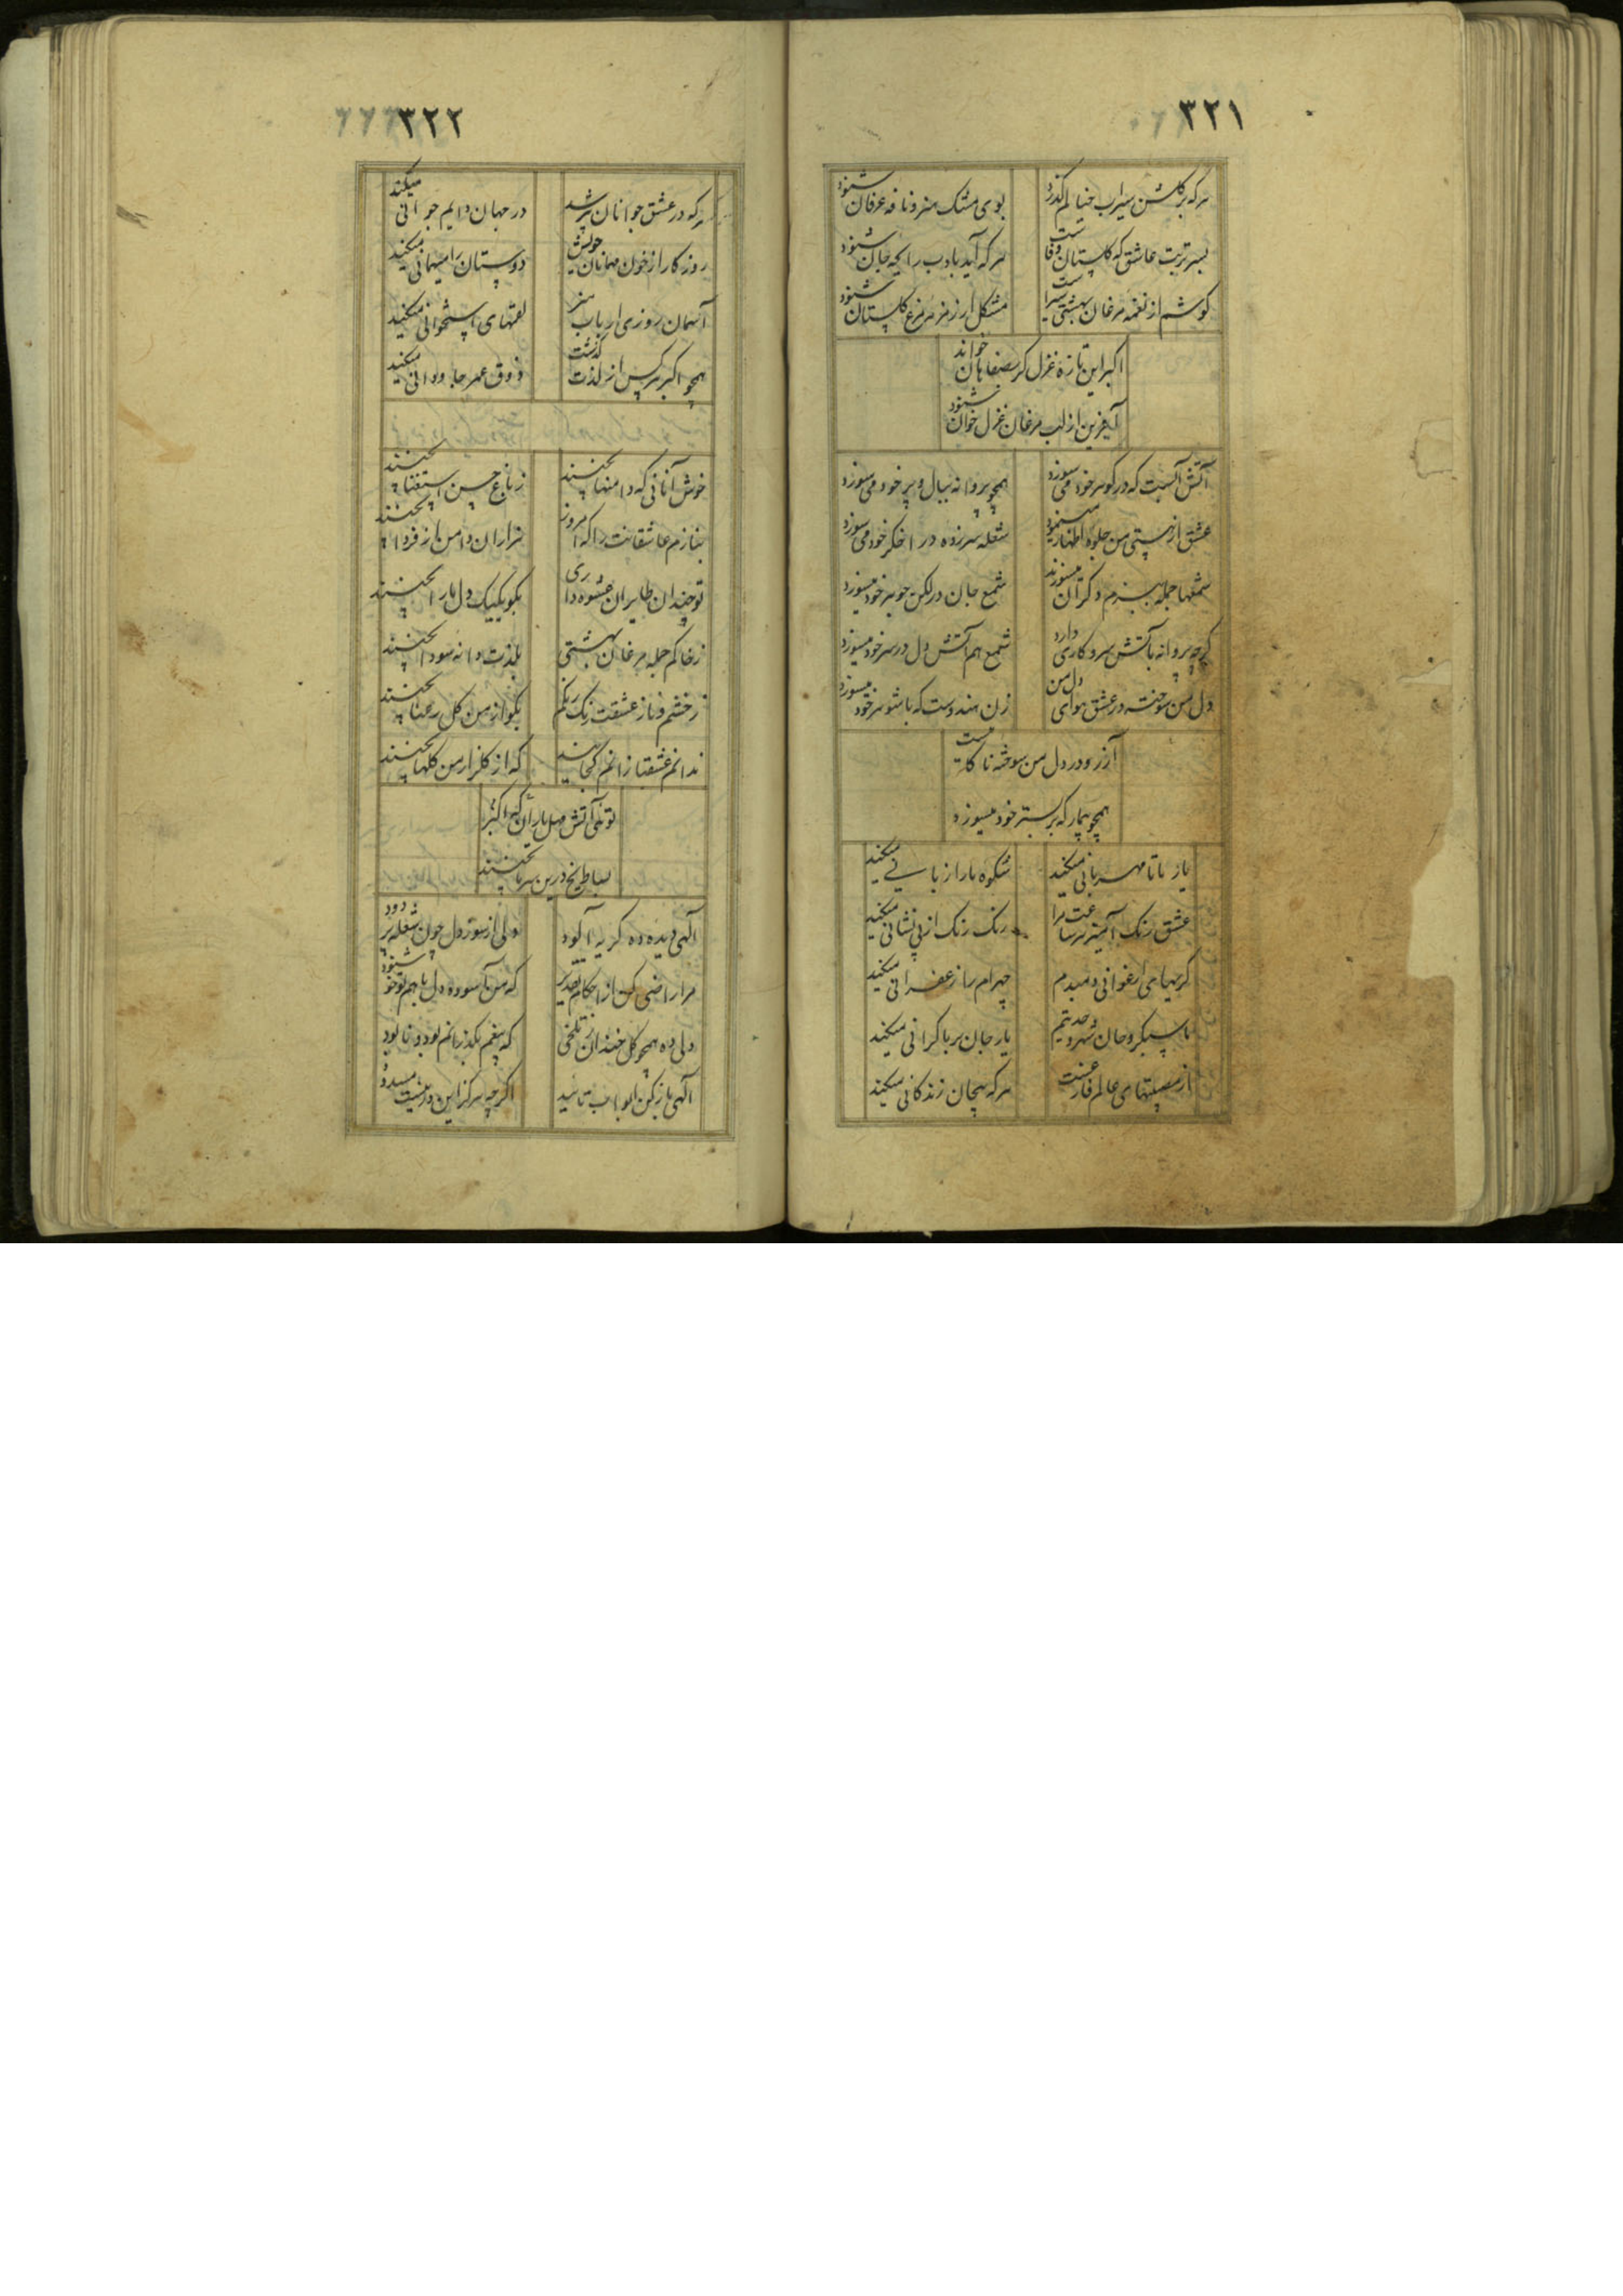 ٣٢١
هرکه بر گلشن سیراب خیالم گذرد
بوی مشک هنر و نافه عرفان شنود
بسر تربت عاشق که گلستان وفاست
هرکه آید بادب رایحه جان شنود
گوشم از نغمه مرغان بهشتی سیراست
مشکل ار زمزمه مرغ گلستان شنود
اکبر این تازه غزل گر بصفاهان خواند
آفرین از لب مرغان غزل خوان شنود
آتش آنست که در گوهر خود می سوزد
همچو پروانه ببال و پر خود می سوزد
عشق از هستی من جلوه اظهار
شعله سرزده در اخگر خود می سوزد
شمعها جمله ببزم دگران میسوزند
شمع جان در لگن جوهر خود میسوزد
گرچه پروانه بآتش سر و کاری دارد
شمع هم آتش دل در سر خود میسوزد
دل من سوخته در عشق هوای دل من
زن هندوست که با شوهر خود میسوزد
آرزو در دل من سوخته
همچو بیمار که بر بستر خود میسوزد
یار با ما مهربانی میکند
شکوه ما را زبانی میکند
عشق رنگ آمیز
رنگ رنگ از بی نشانی میکند
گریهای ارغوانی دمبدم
چهرام را زعفرانی میکند
ما سبکروحان
یار جان بر ما گرانی میکند
از مصیبتهای عالم فارغست
هرکه بیجان زندگانی میکند
٣٢٢
هرکه در عشق جوانان پیر شد
در جهان دایم جوانی میکند
روزگار از خون مهمانان خویش
دوستان را میهمانی میکند
آسمان روزی ارباب هنر
لقمهای استخوانی میکند
همچو اکبر هرکس از لذت گذشت
ذوق عمر جاودانی میکند
خوش آنانی که دامنها بچینند
ز باغ حسن استغنا بچینند
بنازم عاشقانت را که امروز
هزاران دامن از فردا بچینند
تو چندان طایران عشوه داری
بگو یکیک دل ما را بچینند
ز خاکم جمله مرغان بهشتی
بلذت دانه سودا بچینند
ز خشم و ناز عشقت رنگ رنگم
بگو از من گل رعنا بچینند
ندانم عشقبازانم کجایند
که از گلزار من گلها بچینند
توئی آتش
بساط یخ درین سرما بچینند
الهی دیده ده گریه آلود
دلی از سوز دل چون شعله پر دود
مرا راضی کن از احکام تقدیر
که من آسوده دل باشم تو خشنود
دلی ده همچو گل خندان ز تلخی
که بیغم بگذرانم بود و نابود
الهی باز کن ابواب تائید
اگرچه هرگز این در نیست مسدود